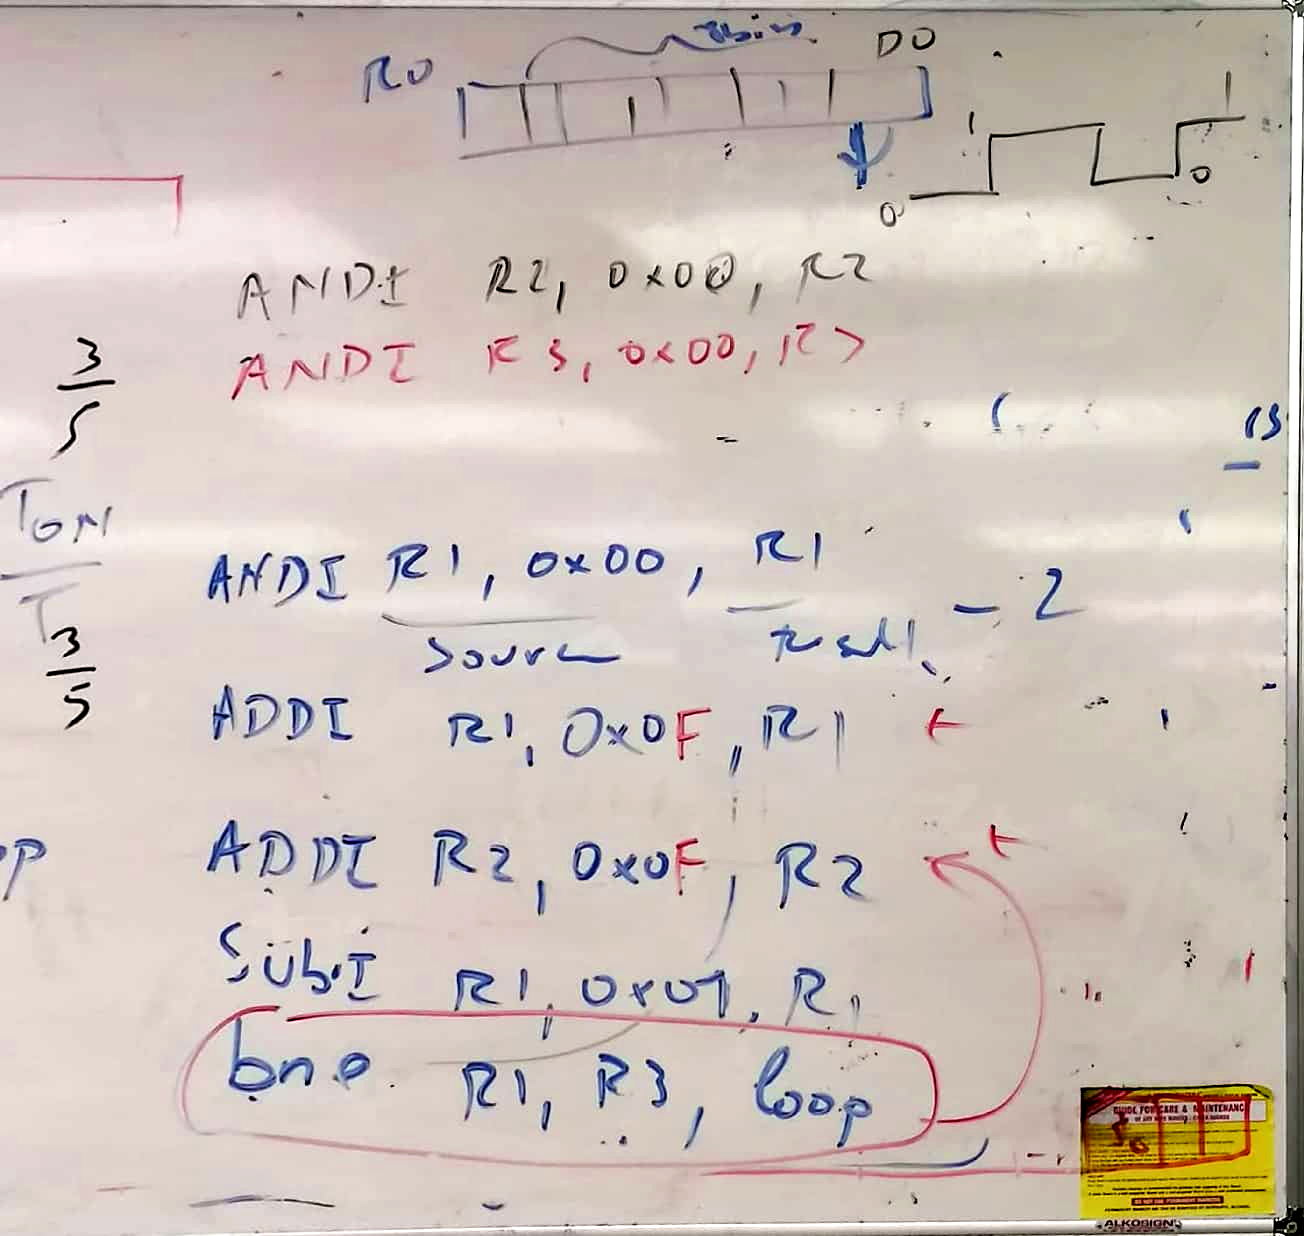 R0
D0
1
1
0
0
ANDI R2, 0x00, R2
ANDI R3, 0x00, R3
3
5
TON
T
3
5
ANDI R1, 0x00, R1 - 2
source result
ADDI R1, 0x0F, R1
op ADDI R2, 0x0F, R2
SUBI R1, 0x01, R1
bne R1, R3, loop
GUIDE FOR CARE & MAINTENANCE
DO NOT USE PERMANENT MARKERS
ALKOSIGN